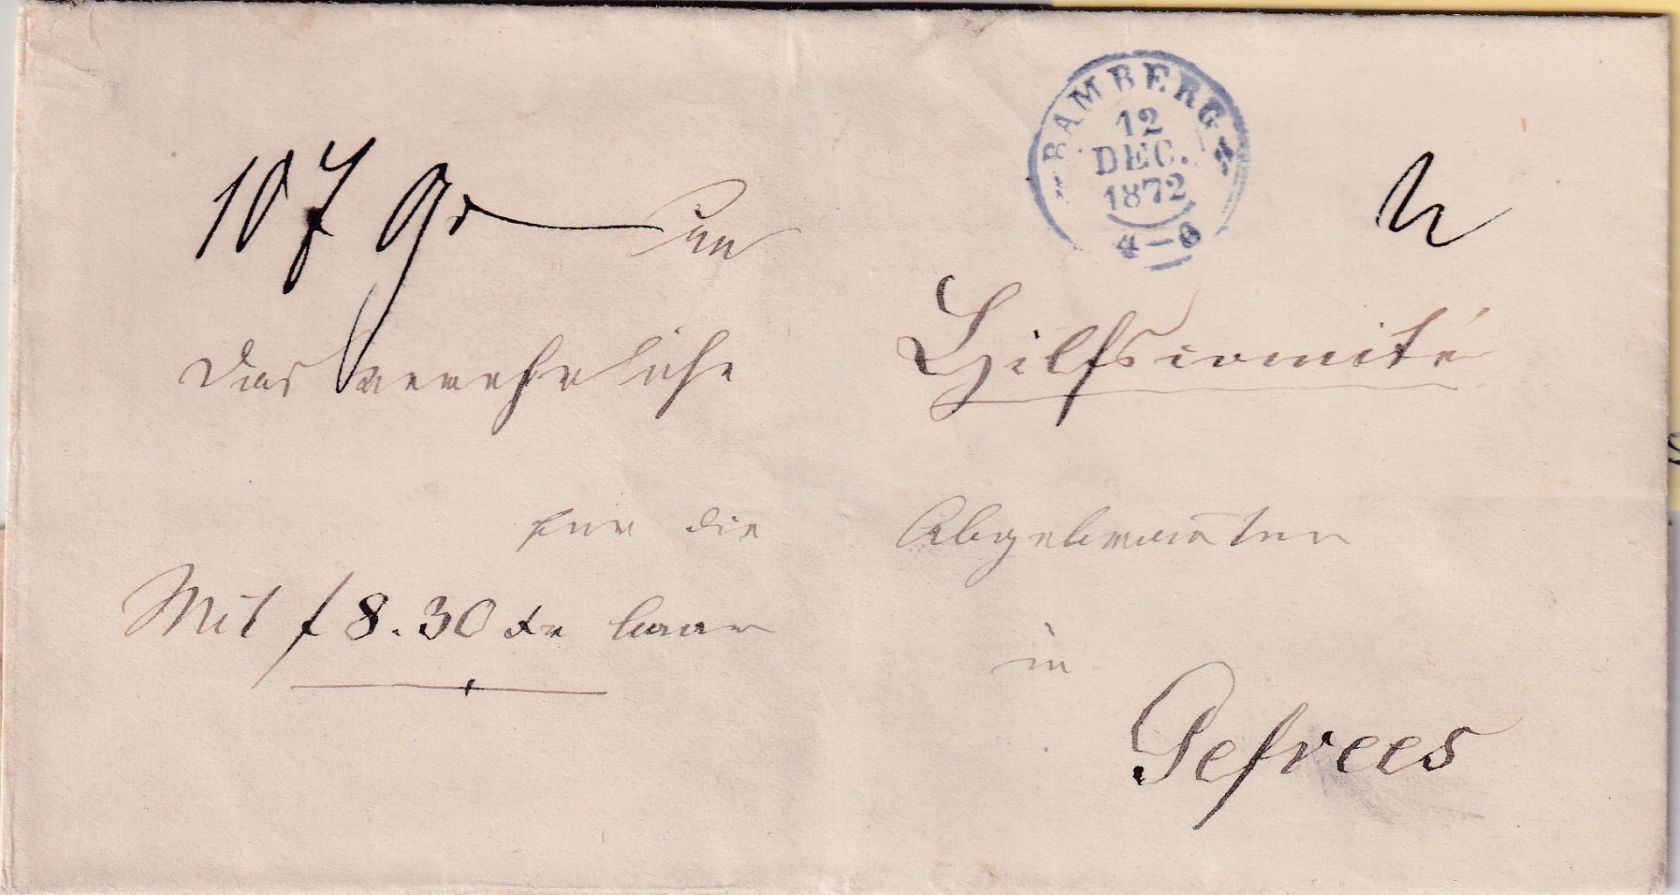 BAMBERG
12
DEC.
1872
4-6
107 gr
An
das verehrliche Hilfscomité
für die Abgebrannten
Mit f 8.30 xr baar
in
Gefrees